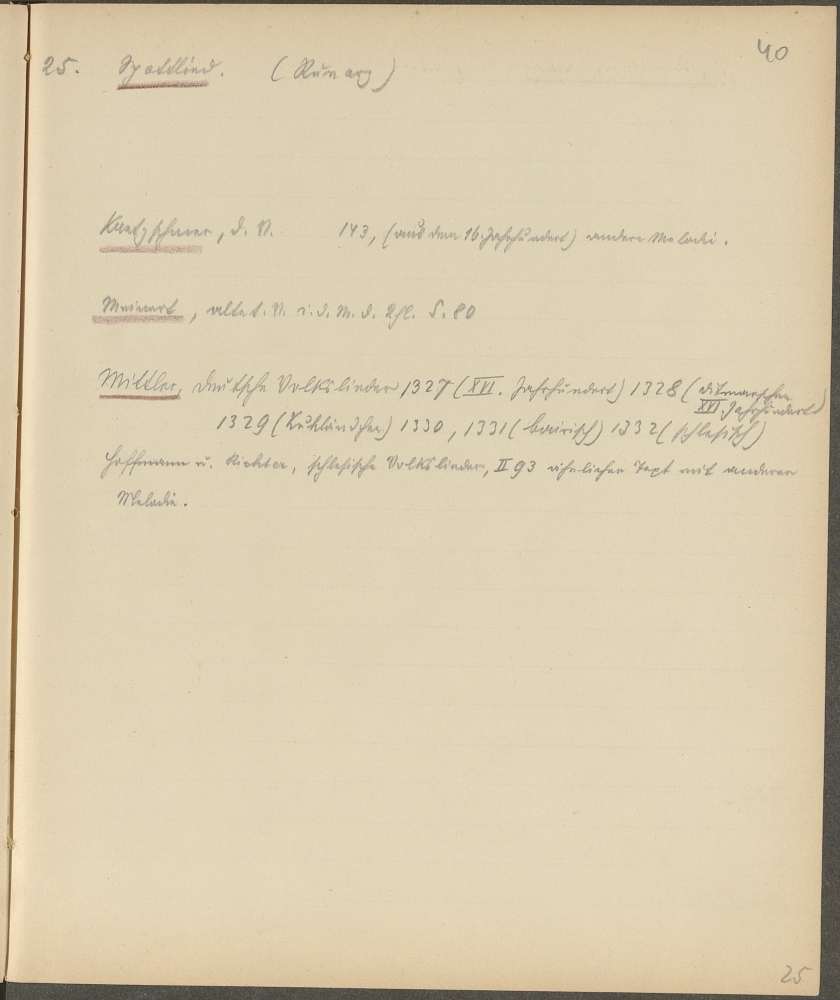 40
25. Spottlied. (Runarz)
Kretzschmer, d. V. 143, (aus dem 16. Jahrhundert) andere Melodie.
Meinert, alte t. V. i. d. M. d. Khl. S. 80
Mittler, deutsche Volkslieder 1327 (XVI. Jahrhundert) 1328 (ditmarschen
XVI. Jahrhundert)
1329 (Kuhländchen) 1330, 1331 (bairisch) 1332 (schlesisch)
Hoffmann u. Richter, schlesische Volkslieder, II 93 ähnlicher Text mit anderer
Melodie.
25